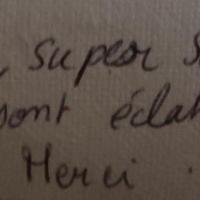 , super s
sont écla
Merci.